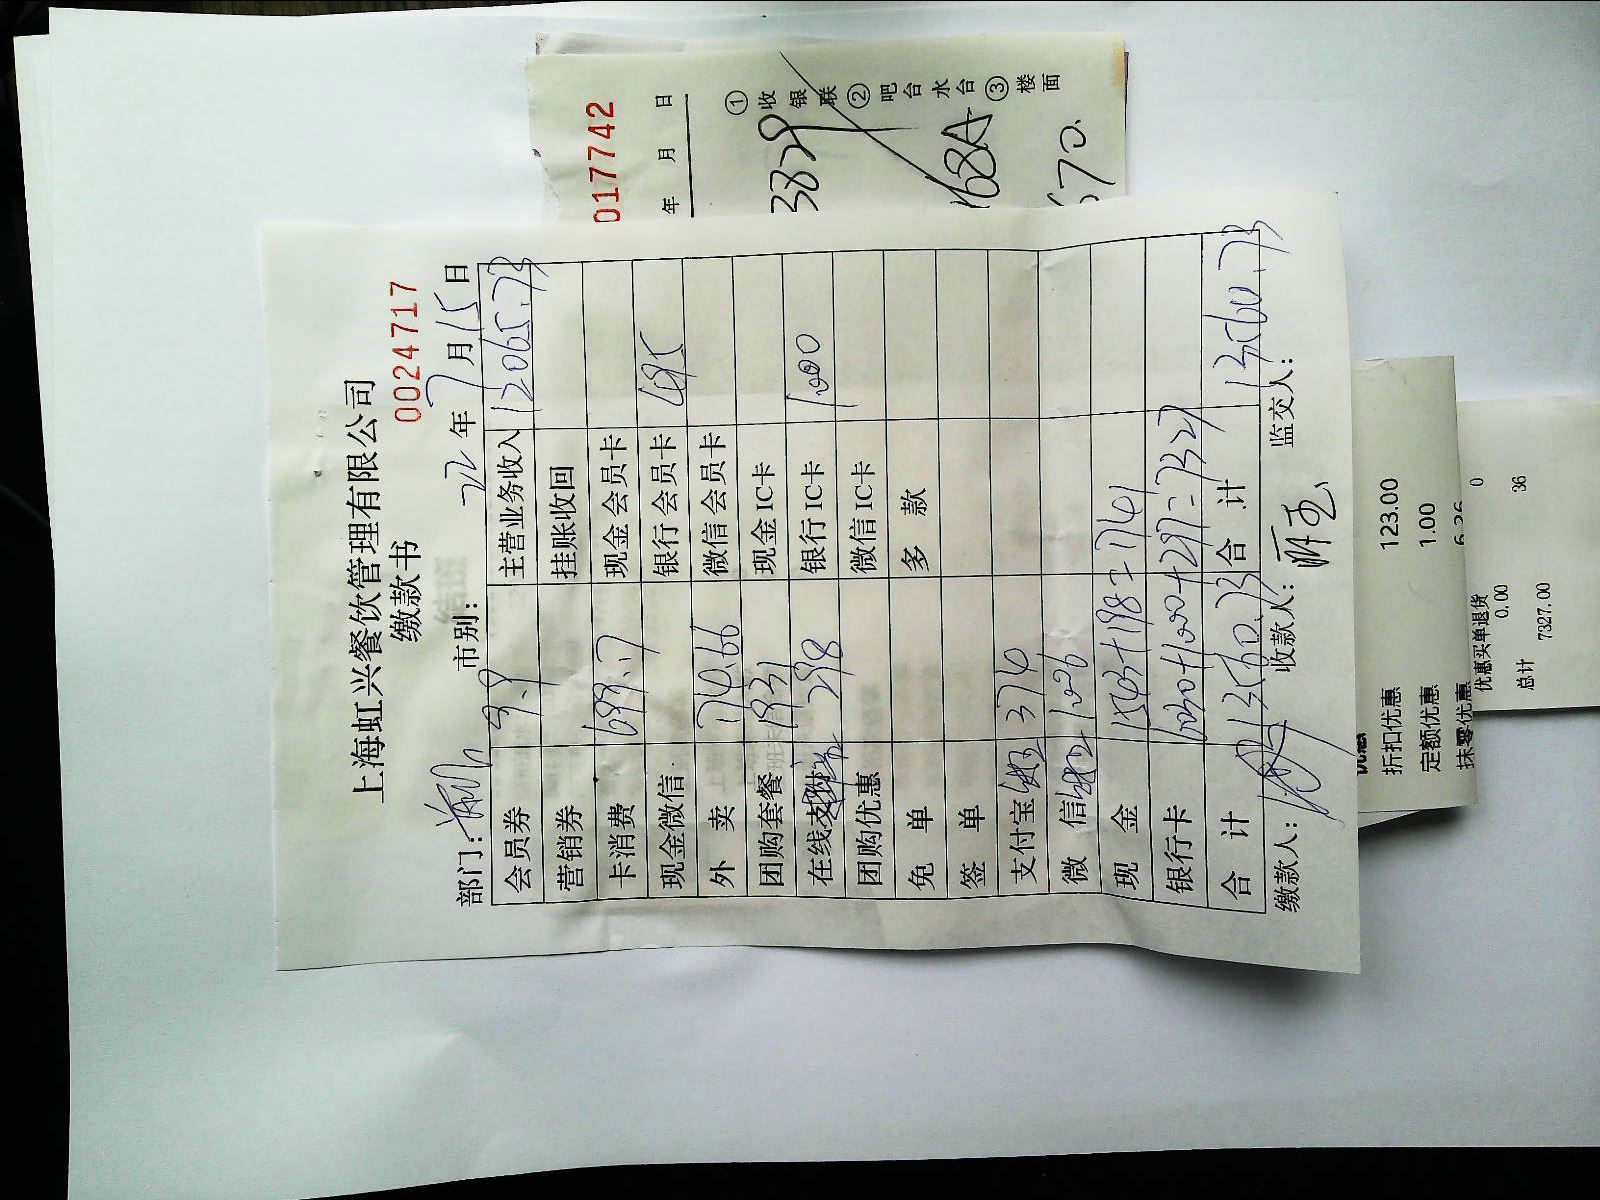 上海虹兴餐饮管理有限公司
缴款书
0024717
部门: 市别: 22年7月15日
会员券 9.9 主营业务收入 12065.73
营销券 挂账收回
卡消费 699.7 现金会员卡
现金微信 银行会员卡 495
外卖 740.66 微信会员卡
团购套餐 1931 现金IC卡
在线 298 银行IC卡 1000
团购优惠 微信IC卡
免单 多款
签单
支付宝 370
微信
现金 1543+198=1741
银行卡 6030+1000+297=7327
合计 13560.73 合计 13560.73
缴款人: 收款人: 监交人:
017742
年 月 日
①收银联②吧台水台③楼面
3829
168A
670.
折扣优惠 123.00
定额优惠 1.00
抹零优惠 6.26
优惠买单退货 0
0.00
总计 36
7327.00